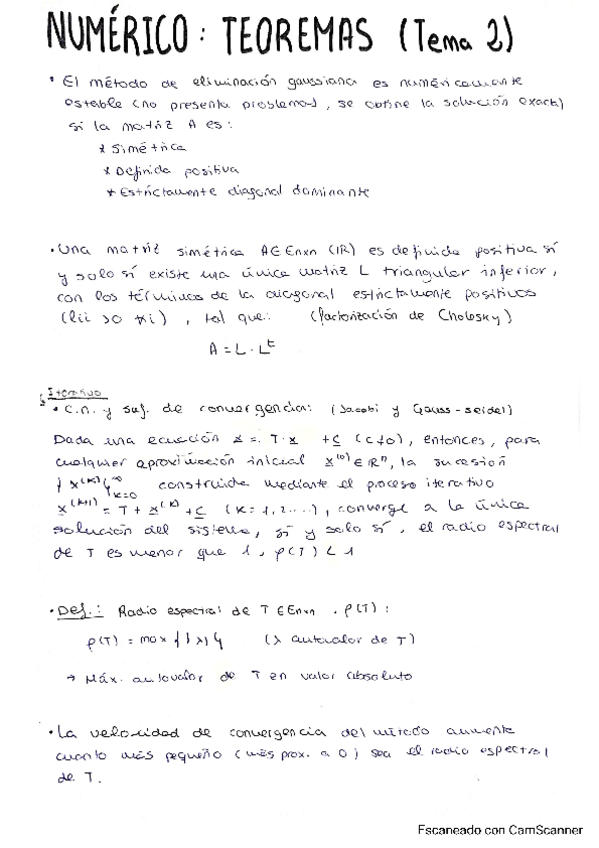 NUMÉRICO: TEOREMAS (Tema 2)
• El método de eliminación gaussiana es numéricamente
estable (no presenta problemas, se obtine la solución exacta)
si la matriz A es:
* Simétrica
* Definida positiva
* Estrictamente diagonal dominante
• Una matriz simétrica A∈Enxn (IR) es definida positiva sí
y solo sí existe una única matriz L triangular inferior,
con los términos de la diagonal estrictamente positivos
(lii >0 ∀i), tal que: (factorización de Cholosky)
A = L · Lᵗ
Iterativo
• C.n. y suf. de convergencia: (Jacobi y Gauss-seidel)
Dada una ecuación x = T·x + c (c≠0), entonces, para
cualquier aproximación inicial x⁽⁰⁾ ∈ Rⁿ, la sucesión
{x⁽ᴷ⁾}∞ₖ₌₀ construida mediante el proceso iterativo
x⁽ᴷ⁺¹⁾ = T + x⁽ᴷ⁾ + c (K = 1, 2...), converge a la única
solución del sistema, sí y solo sí, el radio espectral
de T es menor que 1, ρ(T) < 1
• Def.: Radio espectral de T ∈ Enxn . ρ(T):
ρ(T) = max {|λ|} (λ autovalor de T)
→ Máx. autovalor de T en valor absoluto
• La velocidad de convergencia del método aumenta
cuanto más pequeño (más prox. a 0) sea el radio espectral
de T.
Escaneado con CamScanner